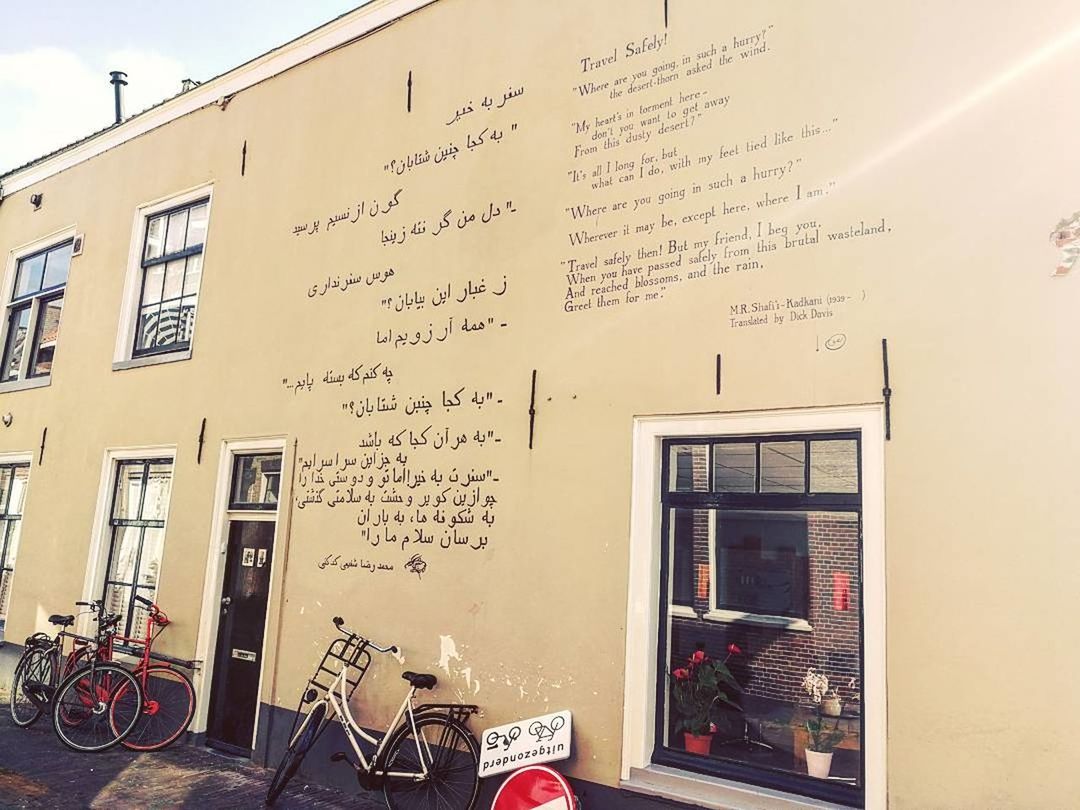 سفر به خیر
"به کجا چنین شتابان؟"
گون از نسیم پرسید
-"دل من گرفته زینجا
هوس سفر نداری
ز غبار این بیابان؟"
-"همه آرزویم اما
چه کنم که بسته پایم..."
-"به کجا چنین شتابان؟"
-"به هر آن کجا که باشد
به جز این سرا سرایم"
-"سفرت به خیر!اما تو و دوستی خدا را
چو ازین کویر وحشت به سلامتی گذشتی،
به شکوفه ها، به باران
برسان سلام ما را"
محمد رضا شفیعی کدکنی
Travel Safely!
"Where are you going, in such a hurry?"
the desert-thorn asked the wind.
"My heart's in torment here-
don't you want to get away
From this dusty desert?"
"It's all I long for, but
what can I do, with my feet tied like this..."
"Where are you going in such a hurry?"
Wherever it may be, except here, where I am."
"Travel safely then! But my friend, I beg you,
When you have passed safely from this brutal wasteland,
And reached blossoms, and the rain,
Greet them for me."
M.R. Shafi'i-Kadkani (1939- )
Translated by Dick Davis
uitgezonderd